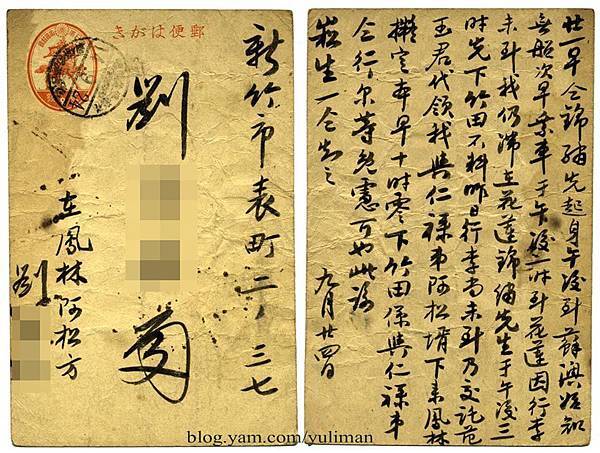 郵便はがき
新竹市表町二ノ三七
劉
在鳳林阿松方
劉
廿一早仝錦先起身午後到蘇澳始知
無船次早乘車于午後二時到花蓮因行李
未到我仍滯在花蓮錦先生于午後三
時先下竹田不料昨日行李尚未到乃交託范
玉君代領我與仁祿車阿松壻下來鳳林
擬定本早十時零下竹田係與仁祿車
仝行尔等免慮可也此諭
崧生一仝知之
九月廿四日
blog.yam.com/yuliman